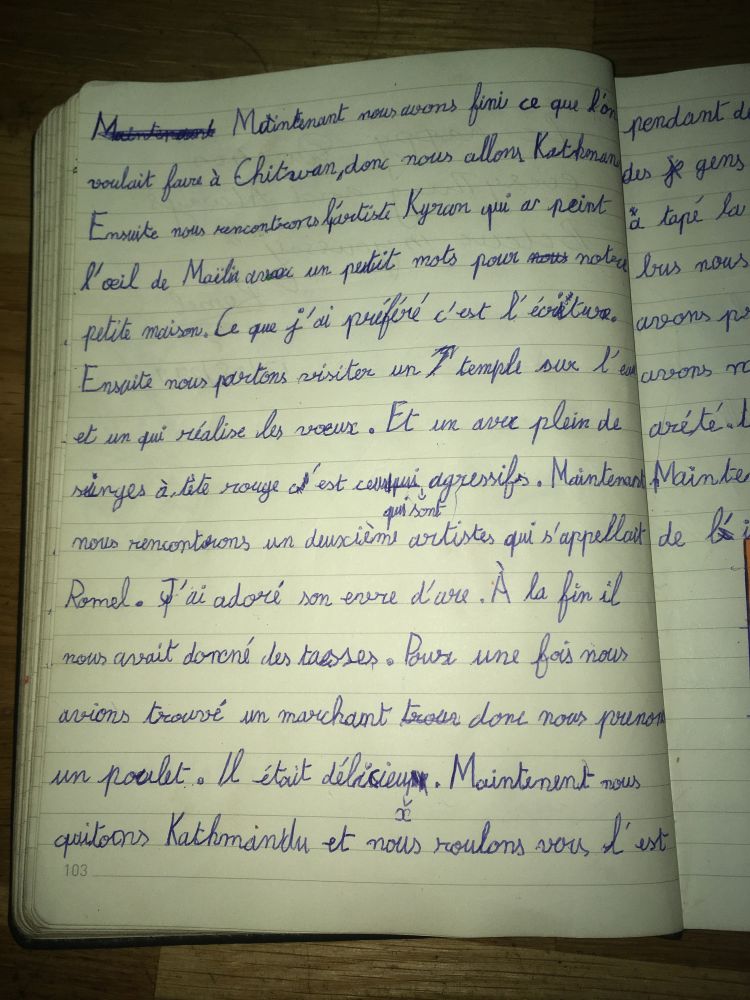 Maintenant Maintenant nous avons fini ce que l'on
voulait faire à Chitwan, donc nous allons Kathman
Ensuite nous rencontrons l'artiste Kyran qui a peint
l'œil de Mailu avec un petit mots pour nous notre
petite maison. Ce que j'ai préféré c'est l'écriture.
Ensuite nous partons visiter un temple sur l'eau
et un qui réalise les vœux. Et un avec plein de
singes à tête rouge c'est ceux qui agressifs. Maintenant
qui sont
nous rencontrons un deuxième artistes qui s'appellait
Romel. J'ai adoré son evre d'are. À la fin il
nous avait donné des tasses. Pour une fois nous
avions trouvé un marchant donc nous prenon
un poulet. Il était délicieux. Maintenent nous
x
quitons Kathmandu et nous roulons vers l'est
103
pendant de
des je gens
a tapé la
bus nous
avons pr
avons
arété.
Mainte
de